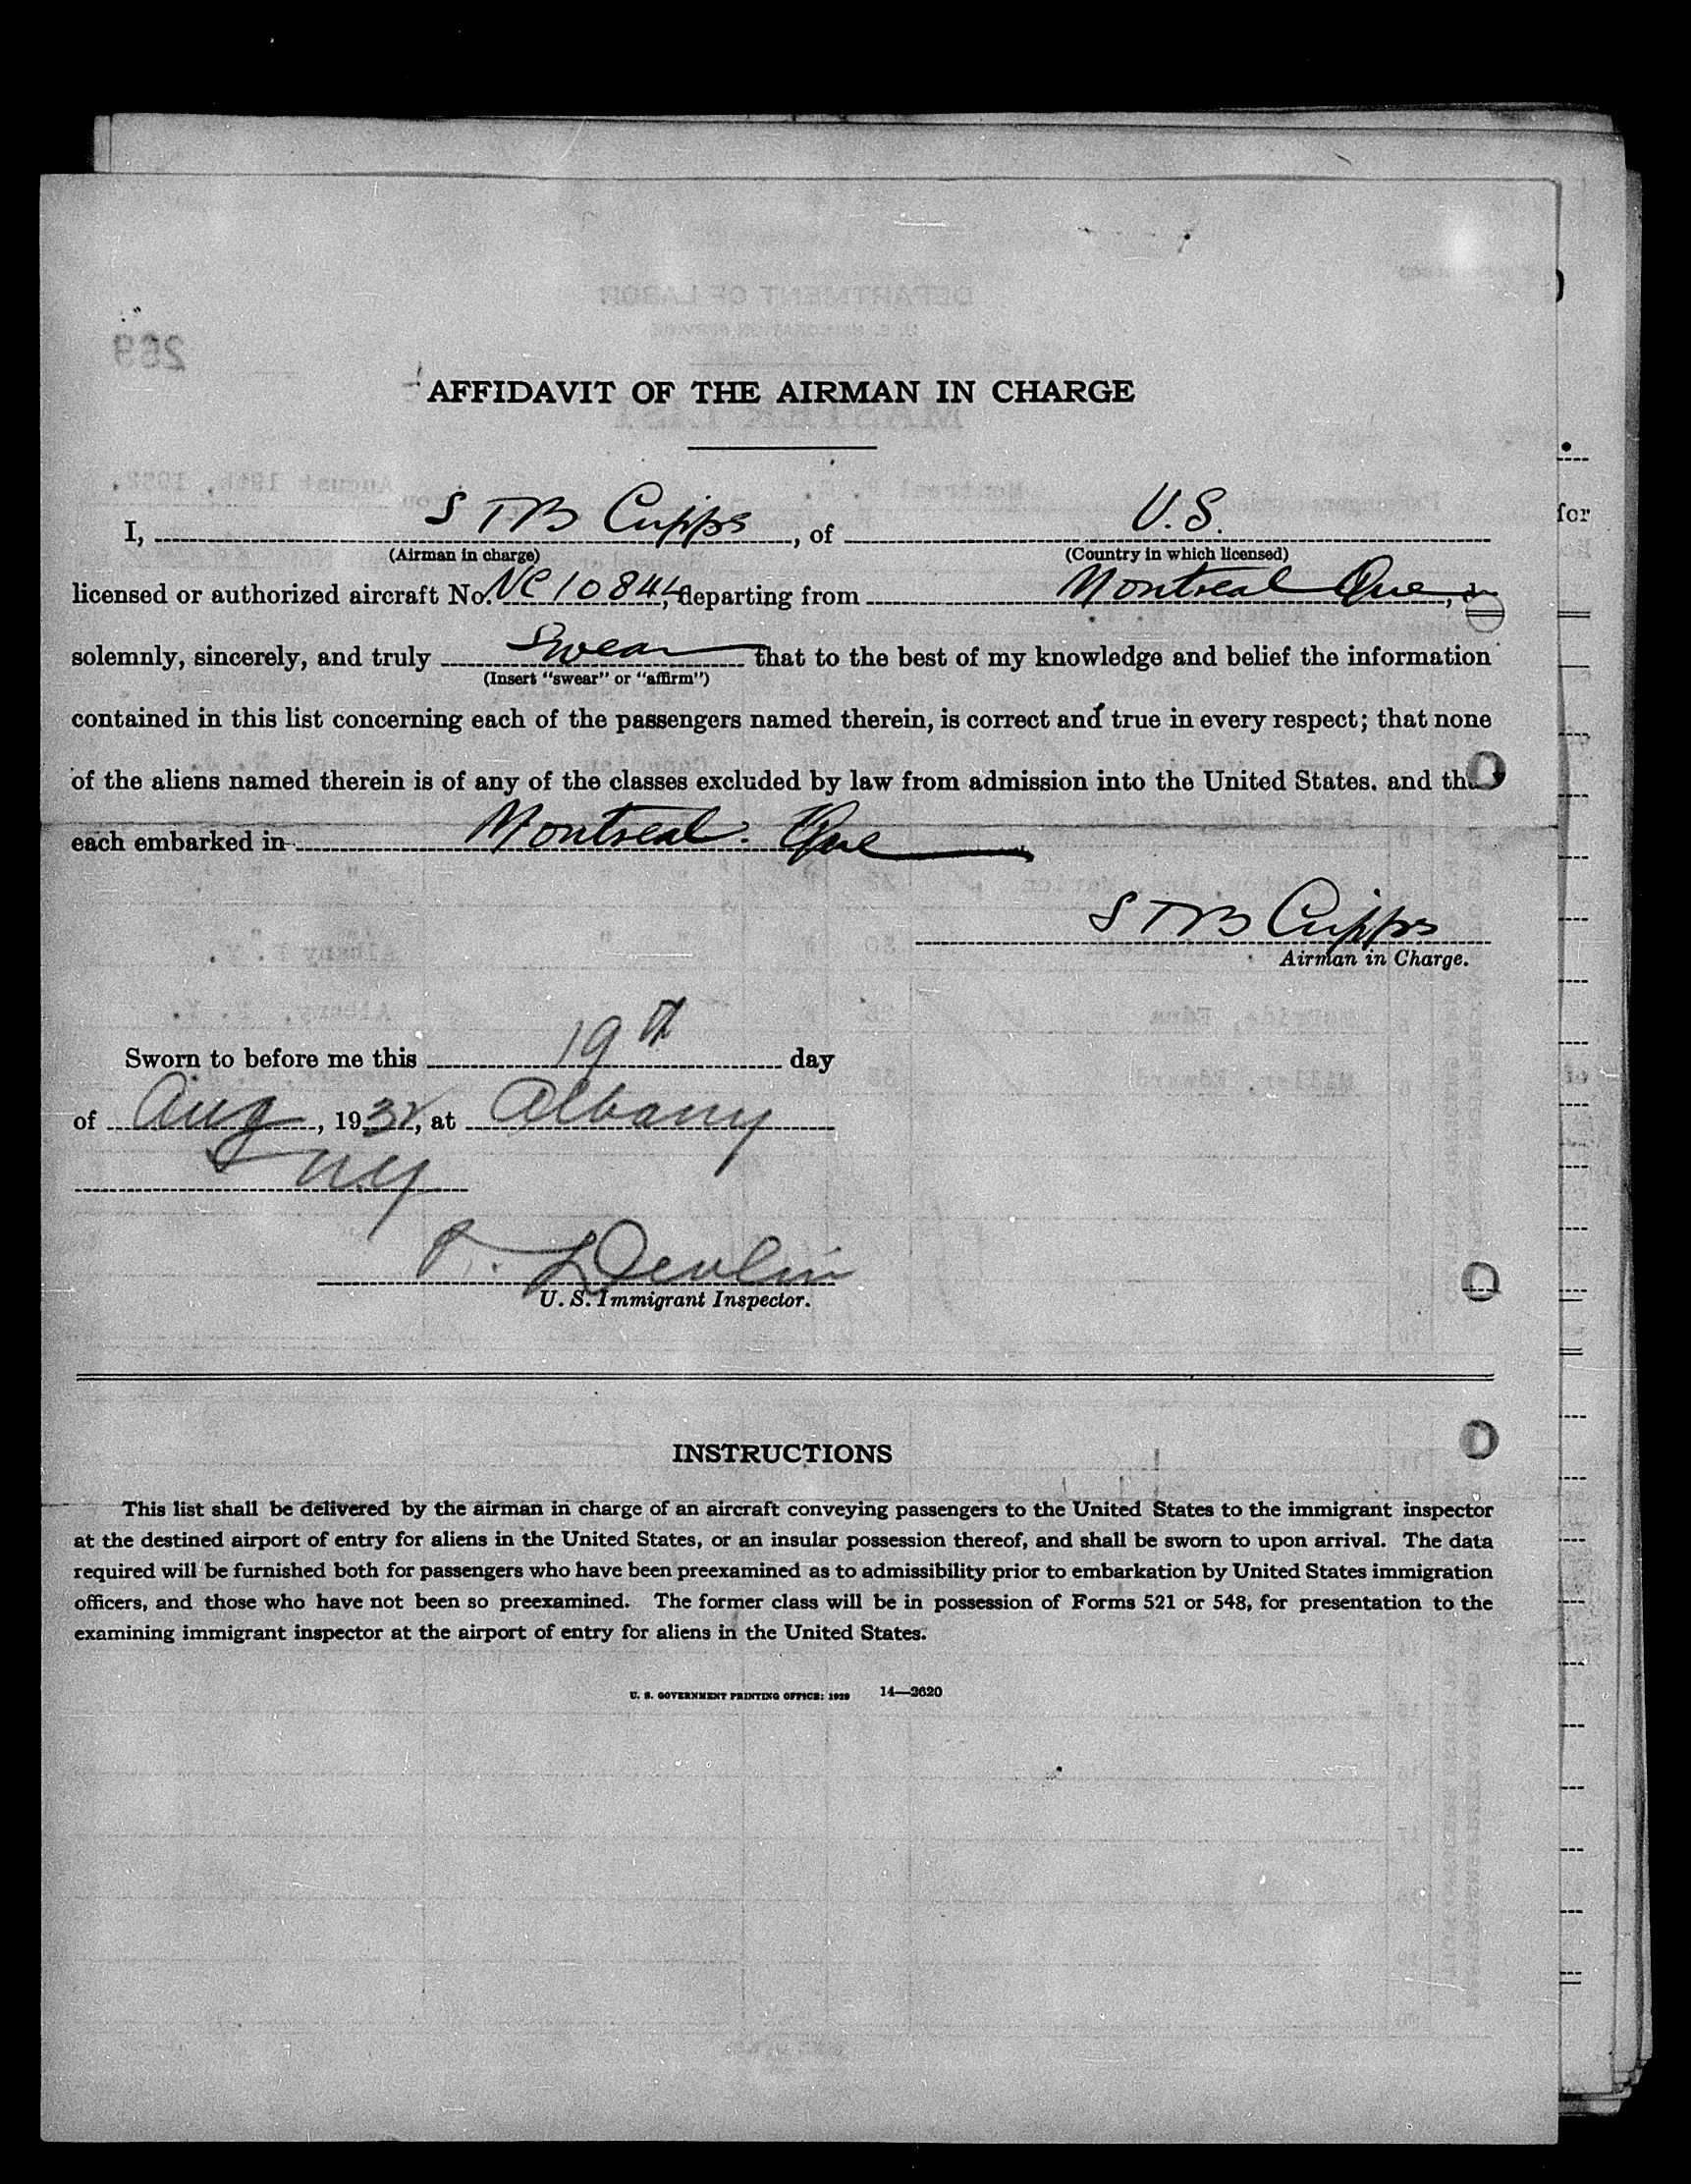 AFFIDAVIT OF THE AIRMAN IN CHARGE
I, S T B Cupps, of U.S.
(Airman in charge) (Country in which licensed)
licensed or authorized aircraft No. NC 10844, departing from Montreal Que, do
solemnly, sincerely, and truly Swear that to the best of my knowledge and belief the information
(Insert "swear" or "affirm")
contained in this list concerning each of the passengers named therein, is correct and true in every respect; that none
of the aliens named therein is of any of the classes excluded by law from admission into the United States, and that
each embarked in Montreal. Que
S T B Cupps
Airman in Charge.
Sworn to before me this 19th day
of Aug, 1932, at Albany
NY
Devlin
U. S. Immigrant Inspector.
INSTRUCTIONS
This list shall be delivered by the airman in charge of an aircraft conveying passengers to the United States to the immigrant inspector
at the destined airport of entry for aliens in the United States, or an insular possession thereof, and shall be sworn to upon arrival. The data
required will be furnished both for passengers who have been preexamined as to admissibility prior to embarkation by United States immigration
officers, and those who have not been so preexamined. The former class will be in possession of Forms 521 or 548, for presentation to the
examining immigrant inspector at the airport of entry for aliens in the United States.
U. S. GOVERNMENT PRINTING OFFICE: 1929 14—3620